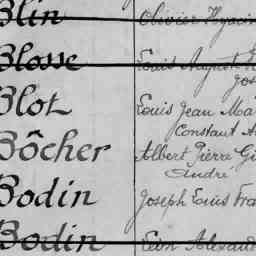 Blin Olivier Hyacin
Blosse Louis August
Jos
Blot Louis Jean Ma
Constant A
Bôcher Albert Pierre G
André
Bodin Joseph Louis Fra
Bodin Léon Alexand